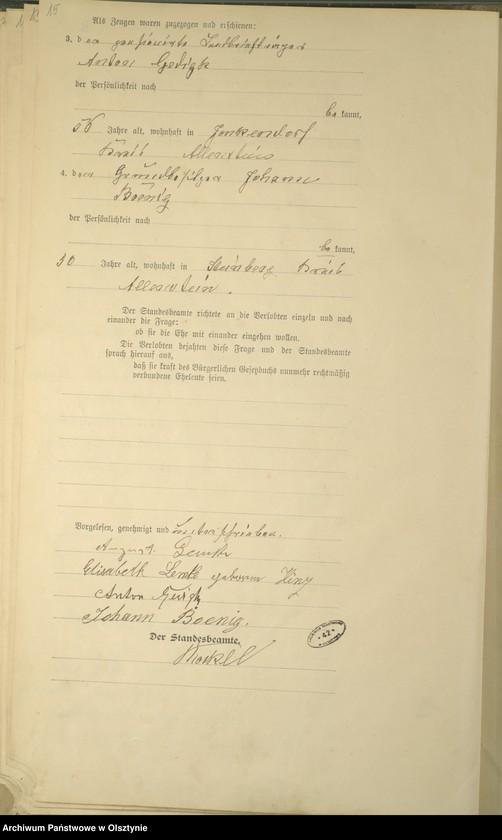 15
Als Zeugen waren zugezogen und erschienen:
3. der pensionirte Landbriefträger
Anton Gedigk
der Persönlichkeit nach
be kannt,
56 Jahre alt, wohnhaft in Jonkendorf
Kreis Allenstein
4. der Grundbesitzer Johann
Boenig
der Persönlichkeit nach
be kannt,
50 Jahre alt, wohnhaft in Steinberg Kreis
Allenstein.
Der Standesbeamte richtete an die Verlobten einzeln und nach
einander die Frage:
ob sie die Ehe mit einander eingehen wollen.
Die Verlobten bejahten diese Frage und der Standesbeamte
sprach hierauf aus,
daß sie kraft des Bürgerlichen Gesetzbuchs nunmehr rechtmäßig
verbundene Eheleute seien.
Vorgelesen, genehmigt und unterschrieben.
August
Elisabeth geborene
Anton Gedigk
Johann Boenig.
Der Standesbeamte.
42
Archiwum Państwowe w Olsztynie